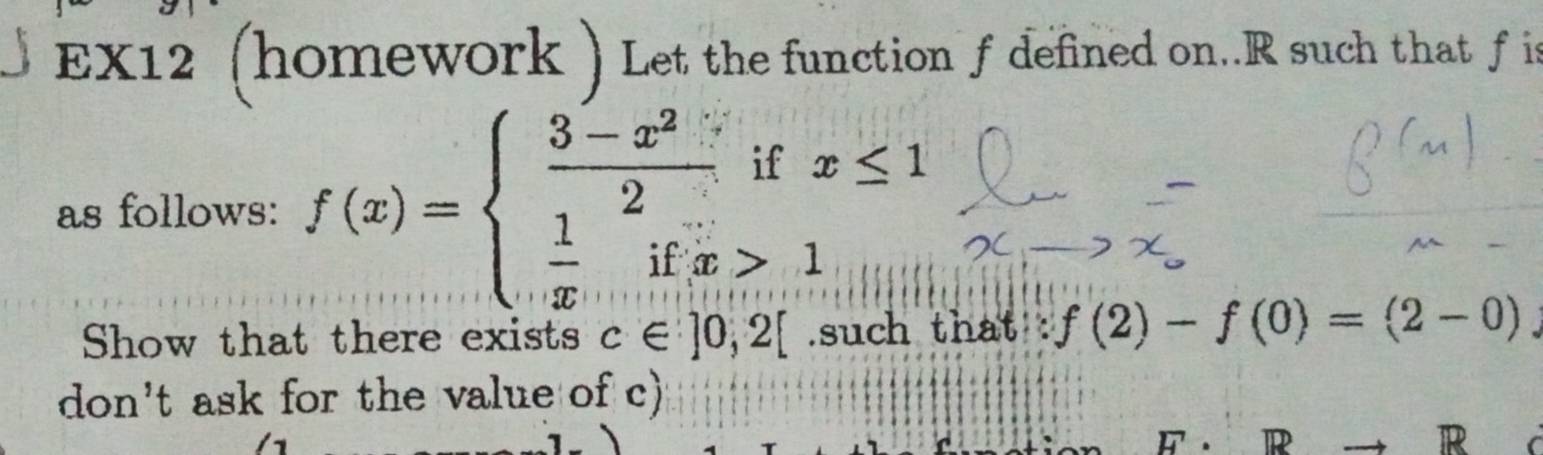 EX12 (homework) Let the function f defined on..ℝ such that f is
as follows: f(x) = { (3 − x²)/2 if x ≤ 1
1/x if x > 1
x → x₀⁻
Show that there exists c ∈ ]0, 2[ .such that :f(2) − f(0) = (2 − 0)
don't ask for the value of c)
F : ℝ → ℝ